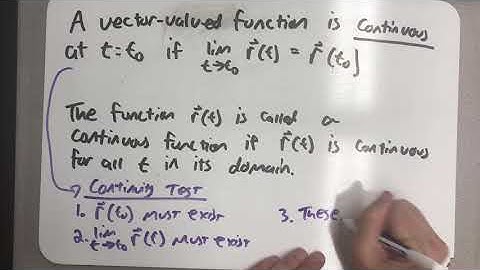 A vector-valued function is continuous
at t=t₀ if lim t→t₀ r⃗(t) = r⃗(t₀)
The function r⃗(t) is called a
continuous function if r⃗(t) is continuous
for all t in its domain.
Continuity Test
1. r⃗(t₀) must exist
2. lim t→t₀ r⃗(t) must exist
3. These